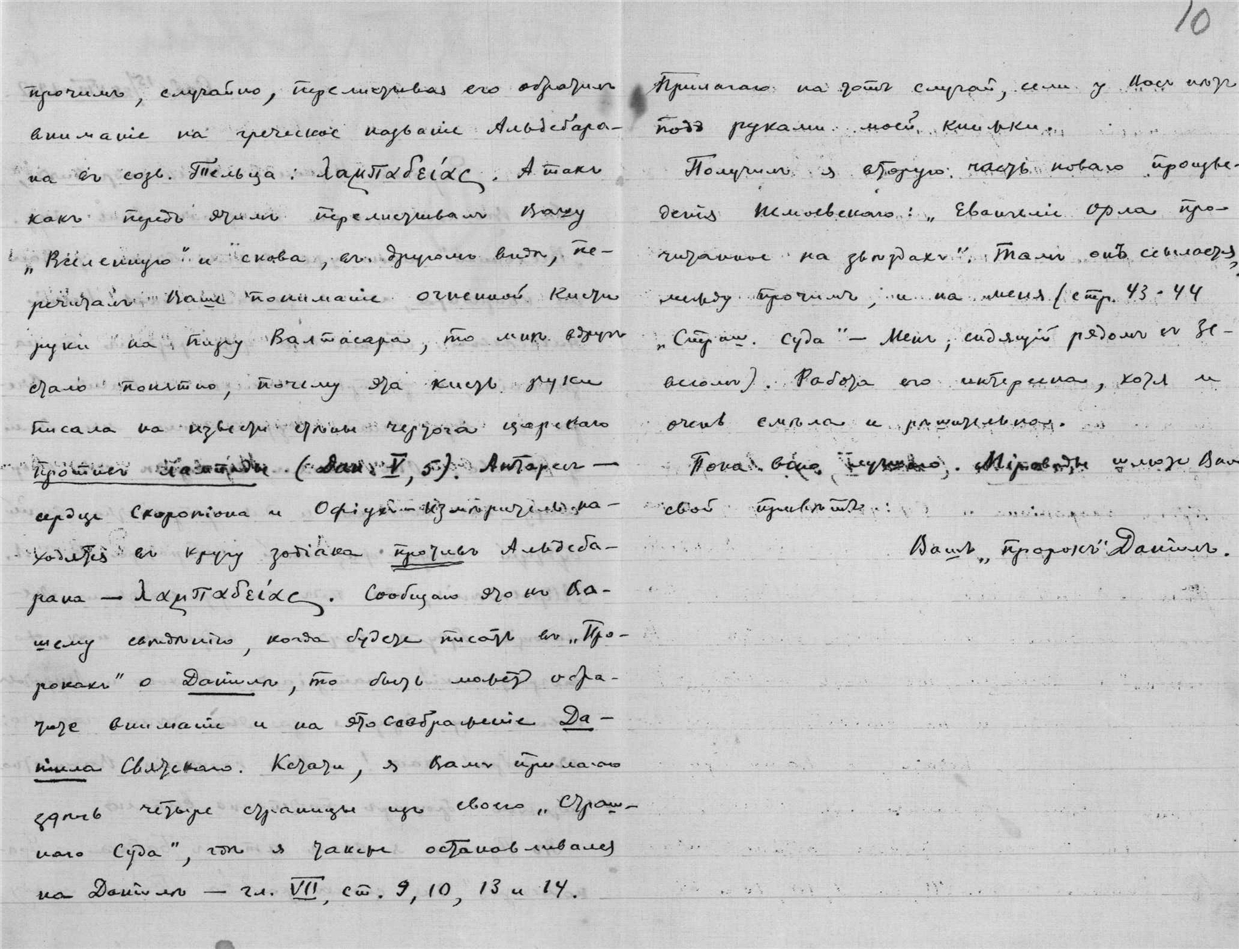 10
прочимъ, случайно, перелистывая его обратилъ
вниманіе на греческое названіе Альдебара-
на въ созв. Тельца: λαμπαδείας. А такъ
какъ передъ этимъ перелистывалъ Вашу
„Вселенную" и снова, въ другомъ видѣ, пе-
речиталъ Ваше пониманіе огненной кисти
руки на пиру Валтасара, то мнѣ вдругъ
стало понятно, почему эта кисть руки
писала на извести стѣны чертога царскаго
противъ лампады (Дан. V, 5). Антаресъ —
сердце Скорпіона и Офіухъ-Измѣритель на-
ходятся въ кругу зодіака противъ Альдеба-
рана — λαμπαδείας. Сообщаю это къ Ва-
шему свѣдѣнію, когда будете писать въ „Про-
рокахъ" о Даніилѣ, то быть можетъ обра-
тите вниманіе и на это соображеніе Да-
ніила Святскаго. Кстати, я Вамъ прилагаю
здѣсь четыре страницы изъ своего „Страш-
наго Суда", гдѣ я также останавливался
на Даніилѣ — гл. VII, ст. 9, 10, 13 и 14.
Прилагаю на тотъ случай, если у Васъ нѣтъ
подъ руками моей книжки.
Получилъ я вторую часть новаго произве-
денія Немоевскаго: „Евангеліе Орла про-
читанное на звѣздахъ". Тамъ онъ ссылается,
между прочимъ, и на меня (стр. 43-44
„Страш. Суда" — Менъ, сидящій рядомъ съ Зе-
весомъ). Работа его интересна, хотя и
очень смѣла и рѣшительна.
Пока всего лучшаго. Міровѣды шлютъ Вамъ
свой привѣтъ.
Вашъ „пророкъ" Даніилъ.